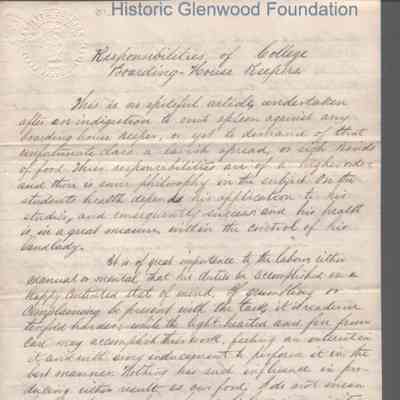 Historic Glenwood Foundation
Responsibilities of College
Boarding-House Keepers
This is no spiteful article, undertaken
after an indigestion to vent spleen against any
boarding house keeper, or yet to demand of that
unfortunate class a lavish spread, or rich kinds
of food. Their responsibilities are of a higher order
and there is some philosophy in the subject. On the
students health depends his application to his
studies, and consequently success and his health
is, in a great measure, within the control of his
landlady.
It is of great importance to the laborer either
manual or mental, that his duties be accomplished in a
happy contented state of mind. If grumbling or
complaining be present with the task, it is rendered
tenfold harder; while the light hearted and free from
care may accomplish their work, feeling an interest in
it and with every inducement to perform it in the
best manner. Nothing has such influence in pro-
ducing either result as our food. I do not mean